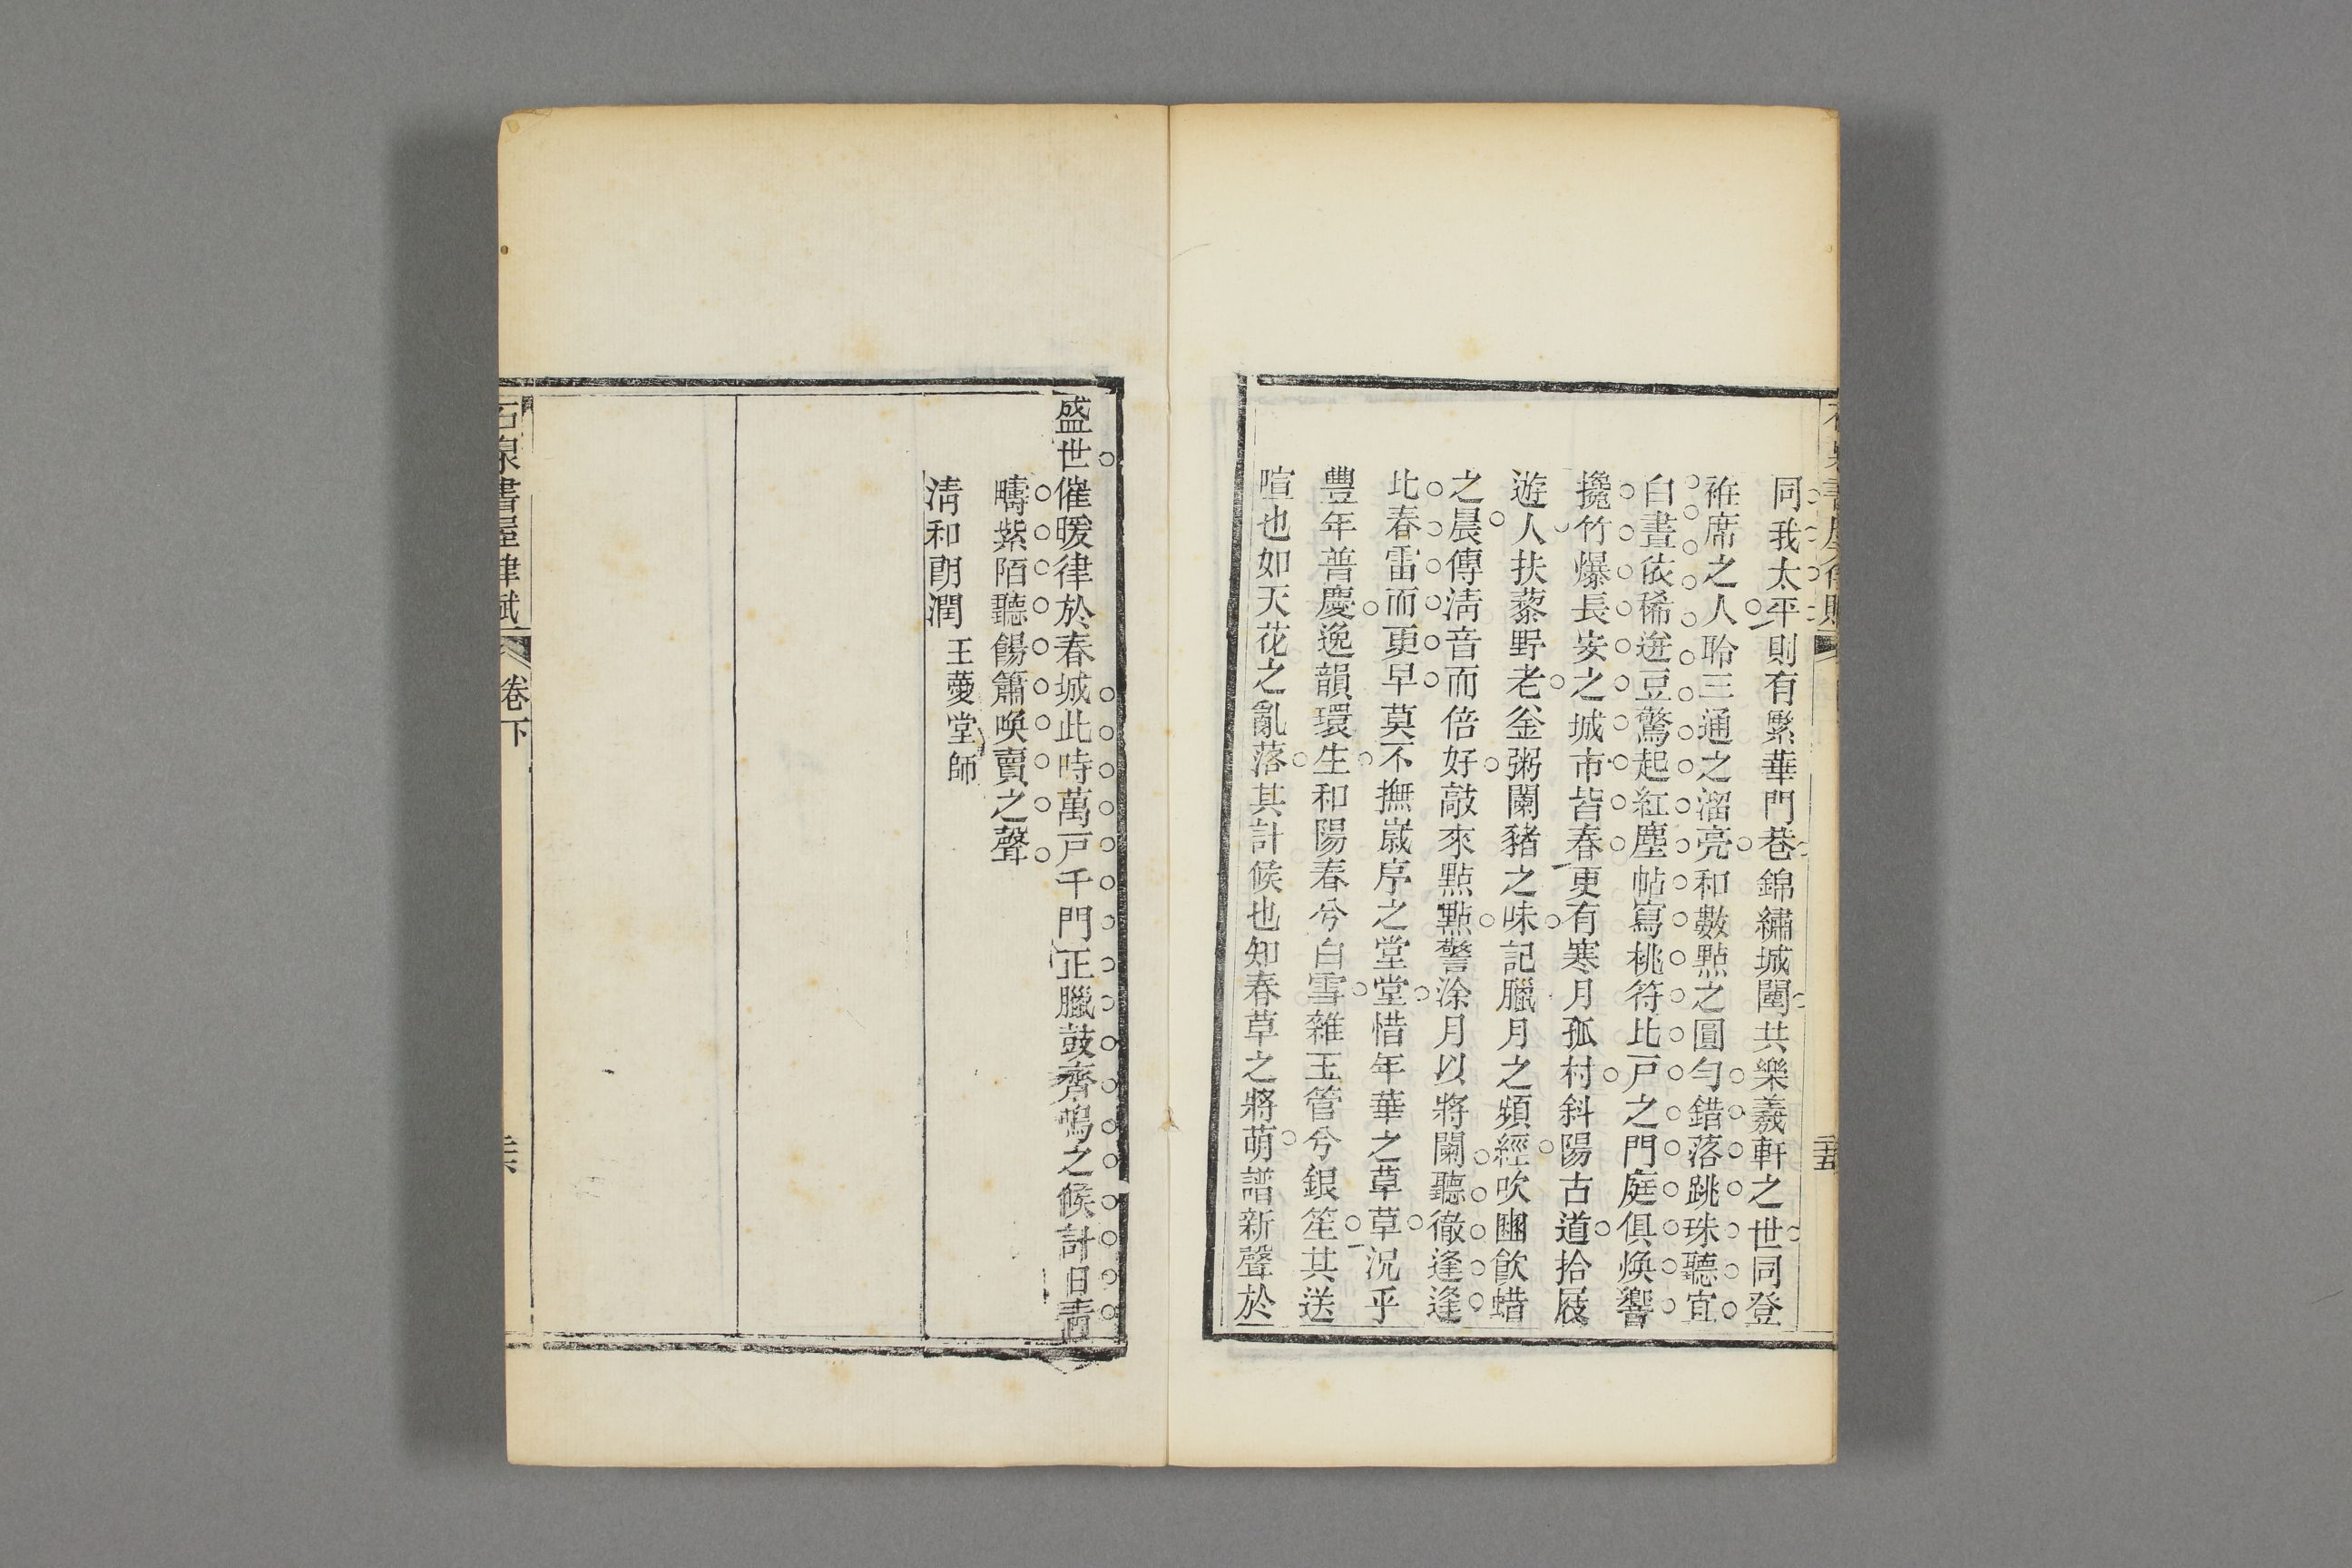 同我太平則有繄華門巷錦繡城闉共樂羲軒之世同登
袵席之人聆三通之溜亮和數點之圓勻錯落跳珠聽宜
白晝依稀迸豆驚起紅塵帖寫桃符比戸之門庭俱煥響
攙竹爆長安之城市皆春更有寒月孤村斜陽古道拾屐
遊人扶藜野老釡粥闌豬之味記臘月之頻經吹豳飮蜡
之晨傳淸音而倍好敲來點點警涂月以將闌聽徹逢逢
此春雷而更早莫不撫嵗序之堂堂惜年華之草草況乎
豐年普慶逸韻環生和陽春兮白雪雜玉管兮銀笙其送
喧也如天花之亂落其計候也知春草之將萌譜新聲於
盛世催暖律於春城此時萬戸千門正臘鼓齊鳴之候計日靑
疇紫陌聽餳簫喚賣之聲
淸和朗潤 王薆堂師
石泉書屋律賦 卷下